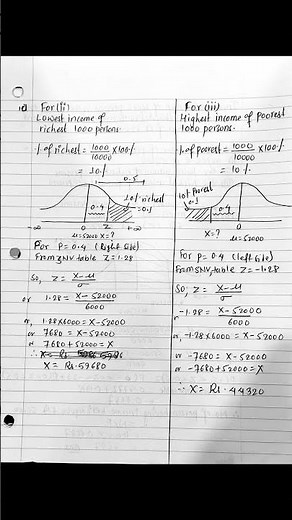 10 For(ii)
Lowest income of
richest 1000 persons.
% of richest = 1000/10000 × 100%
= 10%
0.5
10% richest
= 0.1
0.4
-∞ 0 Z +∞
μ=52000 X=?
For P = 0.4 (Right side)
From SNV, table Z = 1.28
So, Z = X-μ/σ
or 1.28 = X-52000/6000
or, 1.28×6000 = X-52000
or 7680 = X-52000
or 7680+52000 = X
X = Rs.59680
For (iii)
Highest income of poorest
1000 persons.
% of poorest = 1000/10000 × 100%
= 10%
10% poorest
0.1
0.4
0
X=? μ=52000
For P= 0.4 (left side)
From SNV, table Z = -1.28
So, Z = X-μ/σ
or -1.28 = X-52000/6000
or, -1.28×6000 = X-52000
or -7680 = X-52000
or -7680+52000 = X
∴ X = Rs.44320